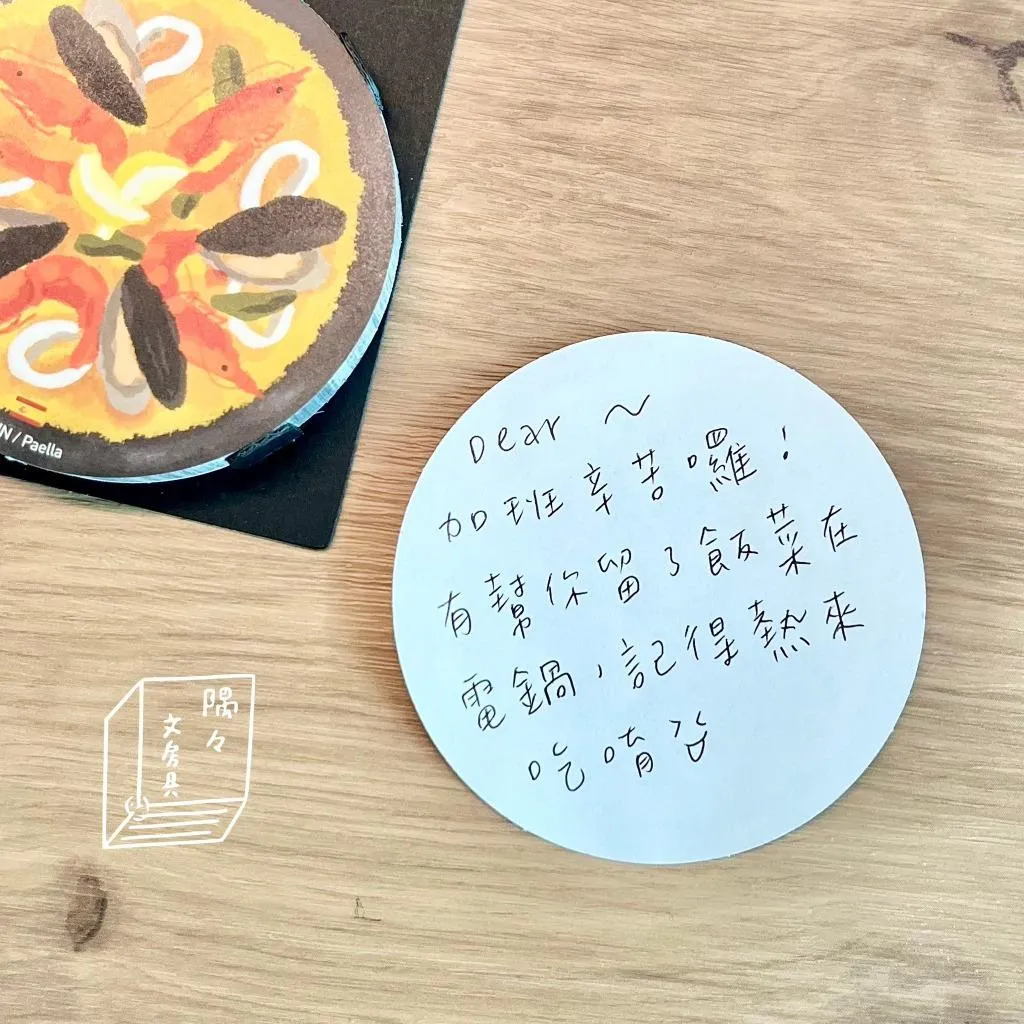 N / Paella
Dear ～
加班辛苦囉！
有幫你留了飯菜在
電鍋，記得熱來
吃唷
隅々
文房具